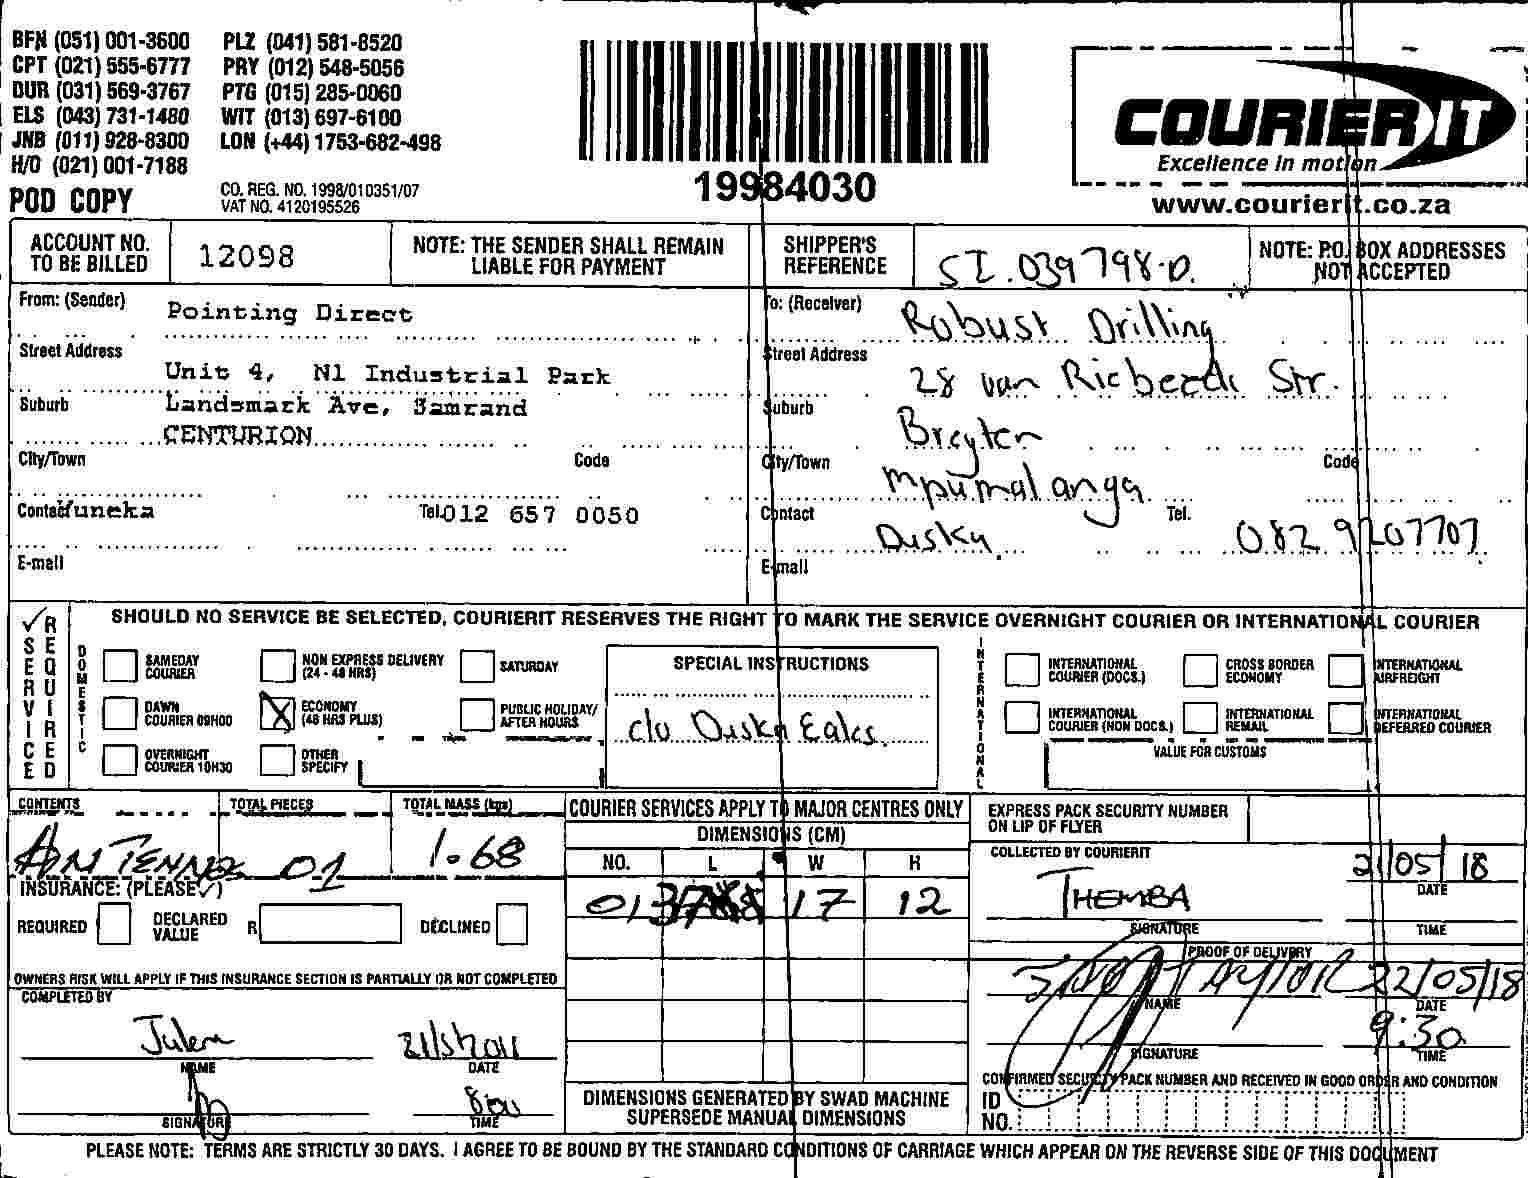 BFN (051) 001-3600 PLZ (041) 581-8520
CPT (021) 555-6777 PRY (012) 548-5056
DUR (031) 569-3767 PTG (015) 285-0060
ELS (043) 731-1480 WIT (013) 697-6100
JNB (011) 928-8300 LON (+44) 1753-682-498
H/O (021) 001-7188
POD COPY
CO. REG. NO. 1998/010351/07
VAT NO. 4120195526
19984030
COURIER IT
Excellence in motion
www.courierit.co.za
ACCOUNT NO. TO BE BILLED
12098
NOTE: THE SENDER SHALL REMAIN LIABLE FOR PAYMENT
SHIPPER'S REFERENCE
SI.039798.D.
NOTE: P.O. BOX ADDRESSES NOT ACCEPTED
From: (Sender) Pointing Direct
Street Address
Unit 4, N1 Industrial Park
Suburb Landsmark Ave, Samrand
CENTURION
City/Town Code
Contact Yuneka Tel. 012 657 0050
E-mail
To: (Receiver) Robust Drilling
Street Address
28 van Riebeeck Str.
Suburb
Breyten
City/Town Code
Mpumalanga
Contact Tel.
Dusky 082 9207707
E-mail
SERVICE REQUIRED
SHOULD NO SERVICE BE SELECTED, COURIERIT RESERVES THE RIGHT TO MARK THE SERVICE OVERNIGHT COURIER OR INTERNATIONAL COURIER
DOMESTIC
SAMEDAY COURIER
NON EXPRESS DELIVERY (24 - 48 HRS)
SATURDAY
DAWN COURIER 09H00
ECONOMY (48 HRS PLUS)
PUBLIC HOLIDAY/ AFTER HOURS
OVERNIGHT COURIER 10H30
OTHER SPECIFY
SPECIAL INSTRUCTIONS
c/o Dusky Eaks.
INTERNATIONAL
INTERNATIONAL COURIER (DOCS.)
CROSS BORDER ECONOMY
INTERNATIONAL AIRFREIGHT
INTERNATIONAL COURIER (NON DOCS.)
INTERNATIONAL REMAIL
INTERNATIONAL DEFERRED COURIER
VALUE FOR CUSTOMS
CONTENTS
TOTAL PIECES
TOTAL MASS (kgs)
01
1.68
INSURANCE: (PLEASE ✓)
REQUIRED
DECLARED VALUE R
DECLINED
OWNERS RISK WILL APPLY IF THIS INSURANCE SECTION IS PARTIALLY OR NOT COMPLETED
COMPLETED BY
NAME
DATE
SIGNATURE
TIME
COURIER SERVICES APPLY TO MAJOR CENTRES ONLY
DIMENSIONS (CM)
NO. L W H
01 17 12
DIMENSIONS GENERATED BY SWAD MACHINE SUPERSEDE MANUAL DIMENSIONS
EXPRESS PACK SECURITY NUMBER ON LIP OF FLYER
COLLECTED BY COURIERIT
THEMBA
21/05/18
DATE
SIGNATURE
TIME
PROOF OF DELIVERY
22/05/18
NAME
DATE
9:30
SIGNATURE
TIME
CONFIRMED SECURITY PACK NUMBER AND RECEIVED IN GOOD ORDER AND CONDITION
ID NO.
PLEASE NOTE: TERMS ARE STRICTLY 30 DAYS. I AGREE TO BE BOUND BY THE STANDARD CONDITIONS OF CARRIAGE WHICH APPEAR ON THE REVERSE SIDE OF THIS DOCUMENT